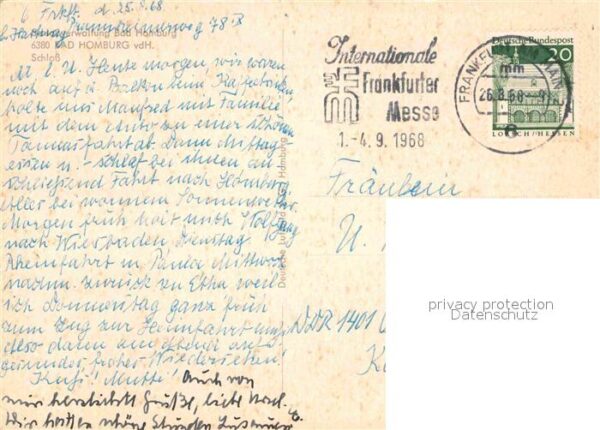 6 Frkft. d. 25.8.68
Verwaltung Bad Homburg
6380 BAD HOMBURG vdH.
Schloß
M. l. U. Heute morgen, wir waren
noch auf d. Balkon beim Kaffeetrinken
holte uns Manfred mit Familie
mit dem Auto zu einer schönen
Taunusfahrt ab. Dann Mittag
essen u. -schlaf bei ihnen an
schließend Fahrt nach Homburg
alles bei warmem Sonnenwetter.
Morgen früh mit Wolfgang
nach Wiesbaden, Dienstag
Rheinfahrt m. Paula Mittwoch
nachm. zurück zu Etha weil
ich Donnerstag ganz früh
zum Zug zur Heimfahrt muß
Also dann auf
gesundes, frohes Wiedersehen!
Kuß! Mutti! Auch von
mir herzlichste Grüße, liebe
Wir hatten schöne Stunden
Internationale
Frankfurter
Messe
1.-4. 9. 1968
FRANKFURT AM MAIN
mm
26.8.68
6
Deutsche Bundespost
20
LORSCH/HESSEN
Fräulein
U.
DDR 1401
privacy protection
Datenschutz